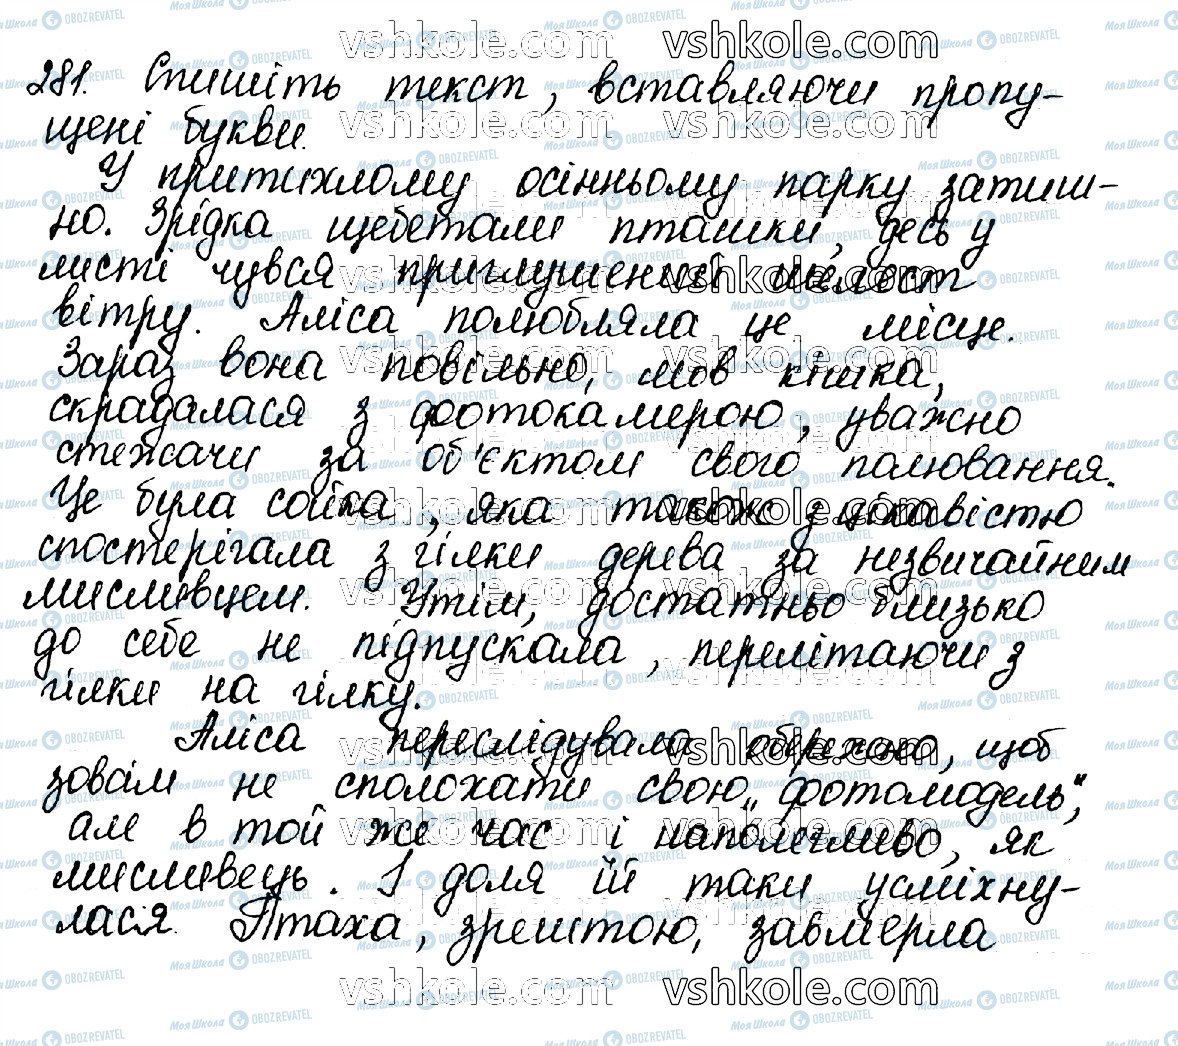 281. Спишіть текст, вставляючи пропу-
щені букви.
У притихлому осінньому парку затиш-
но. Зрідка щебетали пташки, десь у
листі чувся приглушений шелест
вітру. Аліса полюбляла це місце.
Зараз вона повільно, мов кішка,
скрадалася з фотокамерою, уважно
стежачи за об'єктом свого полювання.
Це була сойка, яка також з цікавістю
спостерігала з гілки дерева за незвичайним
мисливцем. Утім, достатньо близько
до себе не підпускала, перелітаючи з
гілки на гілку.
Аліса переслідувала обережно, щоб
зовсім не сполохати свою „фотомодель",
але в той же час і наполегливо, як
мисливець. І доля їй таки усміхну-
лася. Птаха, зрештою, завмерла